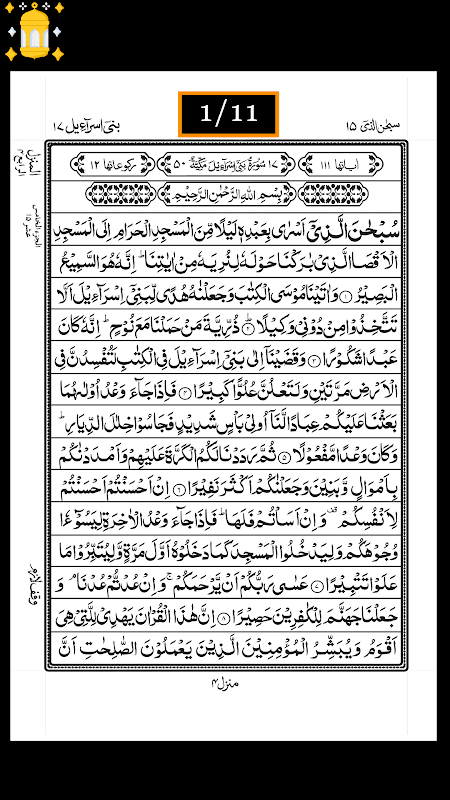 1/11
سبحٰن الذی ۱۵
بنیٓ اسرآءیل ۱۷
اٰیاتها ۱۱۱
۱۷ سُوْرَةُ بَنِیْٓ اِسْرَآءِیْلَ مَكِّیَّةٌ ۵۰
رکوعاتها ۱۲
بِسْمِ اللّٰهِ الرَّحْمٰنِ الرَّحِیْمِ
سُبْحٰنَ الَّذِیْٓ اَسْرٰی بِعَبْدِهٖ لَیْلًا مِّنَ الْمَسْجِدِ الْحَرَامِ اِلَی الْمَسْجِدِ
الْاَقْصَا الَّذِیْ بٰرَكْنَا حَوْلَهٗ لِنُرِیَهٗ مِنْ اٰیٰتِنَا ؕ اِنَّهٗ هُوَ السَّمِیْعُ
الْبَصِیْرُ ۱ وَ اٰتَیْنَا مُوْسَی الْكِتٰبَ وَ جَعَلْنٰهُ هُدًی لِّبَنِیْٓ اِسْرَآءِیْلَ اَلَّا
تَتَّخِذُوْا مِنْ دُوْنِیْ وَكِیْلًا ۲ ؕ ذُرِّیَّةَ مَنْ حَمَلْنَا مَعَ نُوْحٍ ؕ اِنَّهٗ كَانَ
عَبْدًا شَكُوْرًا ۳ وَ قَضَیْنَاۤ اِلٰی بَنِیْٓ اِسْرَآءِیْلَ فِی الْكِتٰبِ لَتُفْسِدُنَّ فِی
الْاَرْضِ مَرَّتَیْنِ وَ لَتَعْلُنَّ عُلُوًّا كَبِیْرًا ۴ فَاِذَا جَآءَ وَعْدُ اُوْلٰىهُمَا
بَعَثْنَا عَلَیْكُمْ عِبَادًا لَّنَاۤ اُولِیْ بَاْسٍ شَدِیْدٍ فَجَاسُوْا خِلٰلَ الدِّیَارِ ؕ
وَ كَانَ وَعْدًا مَّفْعُوْلًا ۵ ثُمَّ رَدَدْنَا لَكُمُ الْكَرَّةَ عَلَیْهِمْ وَ اَمْدَدْنٰكُمْ
بِاَمْوَالٍ وَّ بَنِیْنَ وَ جَعَلْنٰكُمْ اَكْثَرَ نَفِیْرًا ۶ اِنْ اَحْسَنْتُمْ اَحْسَنْتُمْ
لِاَنْفُسِكُمْ وَ اِنْ اَسَاْتُمْ فَلَهَا ؕ فَاِذَا جَآءَ وَعْدُ الْاٰخِرَةِ لِیَسُوْٓءٗا
وُجُوْهَكُمْ وَ لِیَدْخُلُوا الْمَسْجِدَ كَمَا دَخَلُوْهُ اَوَّلَ مَرَّةٍ وَّ لِیُتَبِّرُوْا مَا
عَلَوْا تَتْبِیْرًا ۷ عَسٰی رَبُّكُمْ اَنْ یَّرْحَمَكُمْ ۚ وَ اِنْ عُدْتُّمْ عُدْنَا ۘ وَ
جَعَلْنَا جَهَنَّمَ لِلْكٰفِرِیْنَ حَصِیْرًا ۸ اِنَّ هٰذَا الْقُرْاٰنَ یَهْدِیْ لِلَّتِیْ هِیَ
اَقْوَمُ وَ یُبَشِّرُ الْمُؤْمِنِیْنَ الَّذِیْنَ یَعْمَلُوْنَ الصّٰلِحٰتِ اَنَّ
المنزل الرابع ۴
الجزء الخامس عشر ۱۵
وقف لازم
منزل ۴